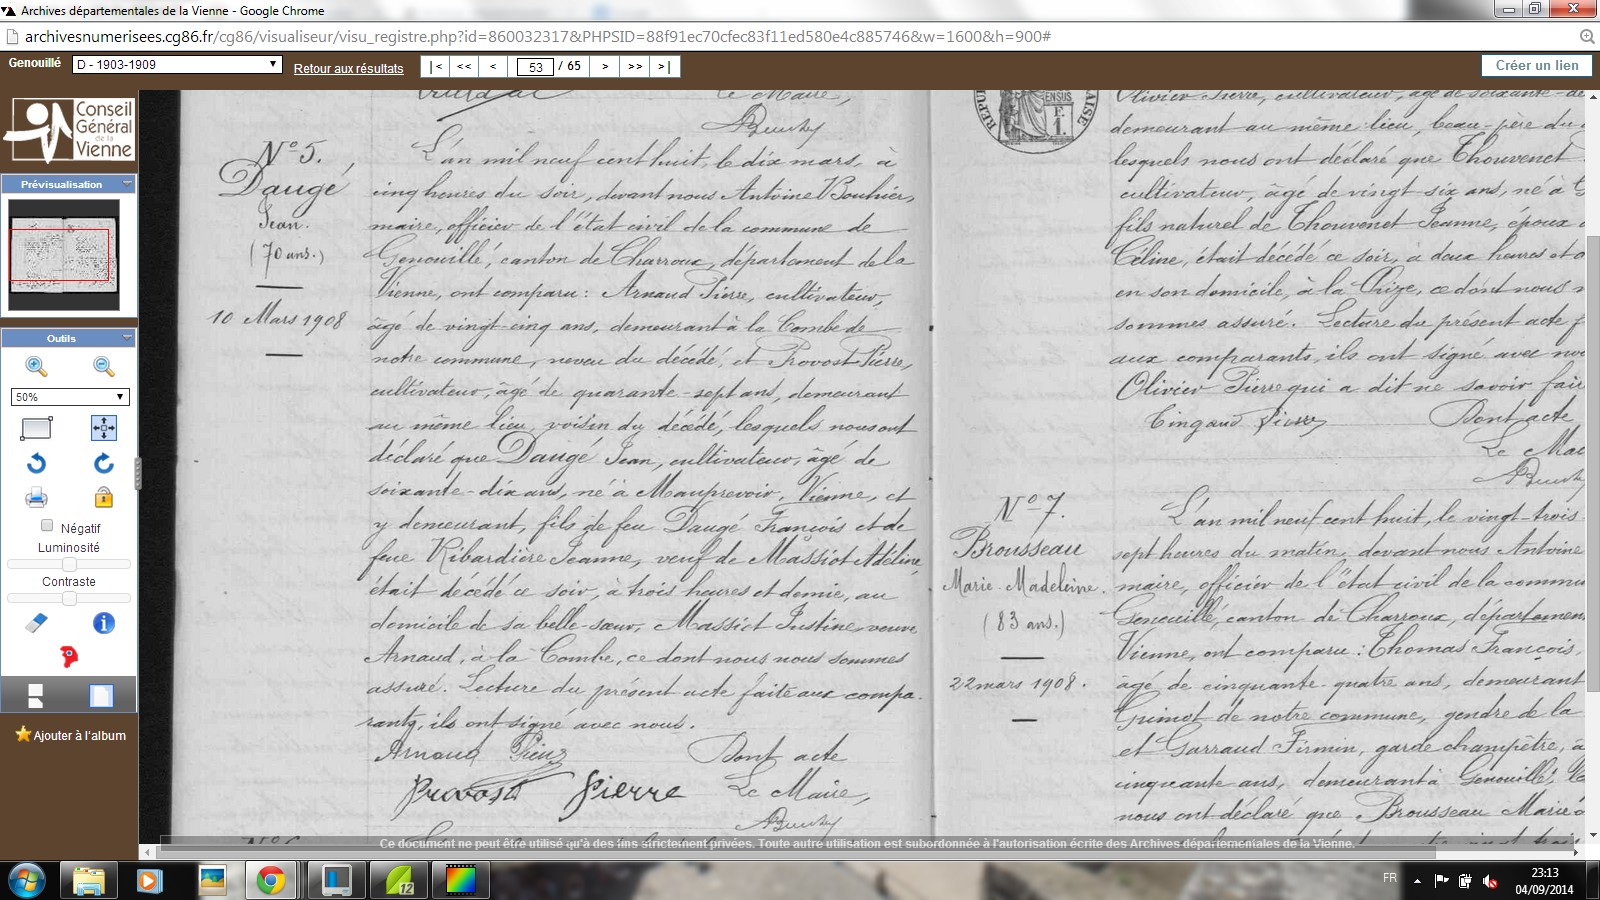 Archives départementales de la Vienne - Google Chrome
archivesnumerisees.cg86.fr/cg86/visualiseur/visu_registre.php?id=860032317&PHPSID=88f91ec70cfec83f11ed580e4c885746&w=1600&h=900#
Genouillé
D - 1903-1909
Retour aux résultats
|< << < 53 / 65 > >> >|
Créer un lien
Conseil
Général
de la
Vienne
Prévisualisation
Outils
50%
Négatif
Luminosité
Contraste
Ajouter à l'album
le Maire,
N° 5.
Daugé
Jean.
(70 ans.)
10 Mars 1908
L'an mil neuf cent huit, le dix mars, à
cinq heures du soir, devant nous Antoine Bouhier,
maire, officier de l'état civil de la commune de
Genouillé, canton de Charroux, département de la
Vienne, ont comparu : Arnaud Pierre, cultivateur,
âgé de vingt-cinq ans, demeurant à la Combe de
notre commune, neveu du décédé, et Provost Pierre,
cultivateur, âgé de quarante-sept ans, demeurant
au même lieu, voisin du décédé, lesquels nous ont
déclaré que Daugé Jean, cultivateur, âgé de
soixante-dix ans, né à Mauprevoir, Vienne, et
y demeurant, fils de feu Daugé François et de
feue Ribardière Jeanne, veuf de Massiot Adéline,
était décédé ce soir, à trois heures et demie, au
domicile de sa belle-sœur, Massiot Justine, veuve
Arnaud, à la Combe, ce dont nous nous sommes
assuré. Lecture du présent acte faite aux compa-
rants, ils ont signé avec nous.
Arnaud Pierre Dont acte
Provost Pierre Le Maire,
N° 6
Olivier Pierre, cultivateur, âgé de soixante-
demeurant au même lieu, beau-père du
lesquels nous ont déclaré que Thouvenet
cultivateur, âgé de vingt-six ans, né à
fils naturel de Thouvenet Jeanne, époux
Céline, était décédé ce soir, à deux heures et
en son domicile, à la Chize, ce dont nous
sommes assuré. Lecture du présent acte
aux comparants, ils ont signé avec
Olivier Pierre qui a dit ne savoir
Tingaud Pierre Dont acte
Le
N° 7.
Brousseau
Marie-Madeleine.
(83 ans.)
22 mars 1908.
L'an mil neuf cent huit, le vingt-trois
sept heures du matin, devant nous Antoine
maire, officier de l'état civil de la
Genouillé, canton de Charroux,
Vienne, ont comparu : Thomas François,
âgé de cinquante-quatre ans, demeurant
Grimot de notre commune, gendre de la
et Garraud Firmin, garde champêtre,
cinquante ans, demeurant à Genouillé,
nous ont déclaré que Brousseau Marie
Ce document ne peut être utilisé qu'à des fins strictement privées. Toute autre utilisation est subordonnée à l'autorisation écrite des Archives départementales de la Vienne.
FR
23:13
04/09/2014